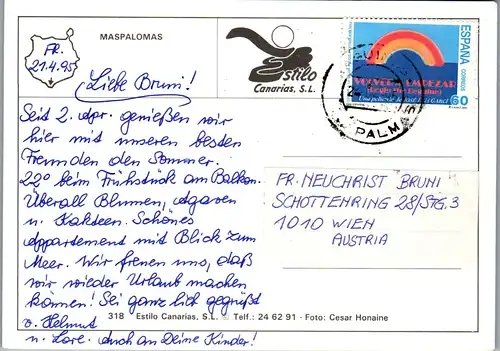 MASPALOMAS
FR.
21.4.95
Estilo
Canarias, S.L.
ESPAÑA
CORREOS
VOLVER A EMPEZAR
60
PALMAS
Liebe Bruni!
Seit 2. Apr. genießen wir
hier mit unseren besten
Freunden den Sommer.
22° beim Frühstück am Balkon.
Überall Blumen, Agaven
u. Kakteen. Schönes
Appartement mit Blick zum
Meer. Wir freuen uns, daß
wir wieder Urlaub machen
können! Sei ganz lich gegrüßt
v. Helmut
u. Lore. Auch an Deine Kinder!
FR. NEUCHRIST BRUNI
SCHOTTENRING 28/STG.3
1010 WIEN
AUSTRIA
318 Estilo Canarias, S.L. Telf.: 24 62 91 - Foto: Cesar Honaine